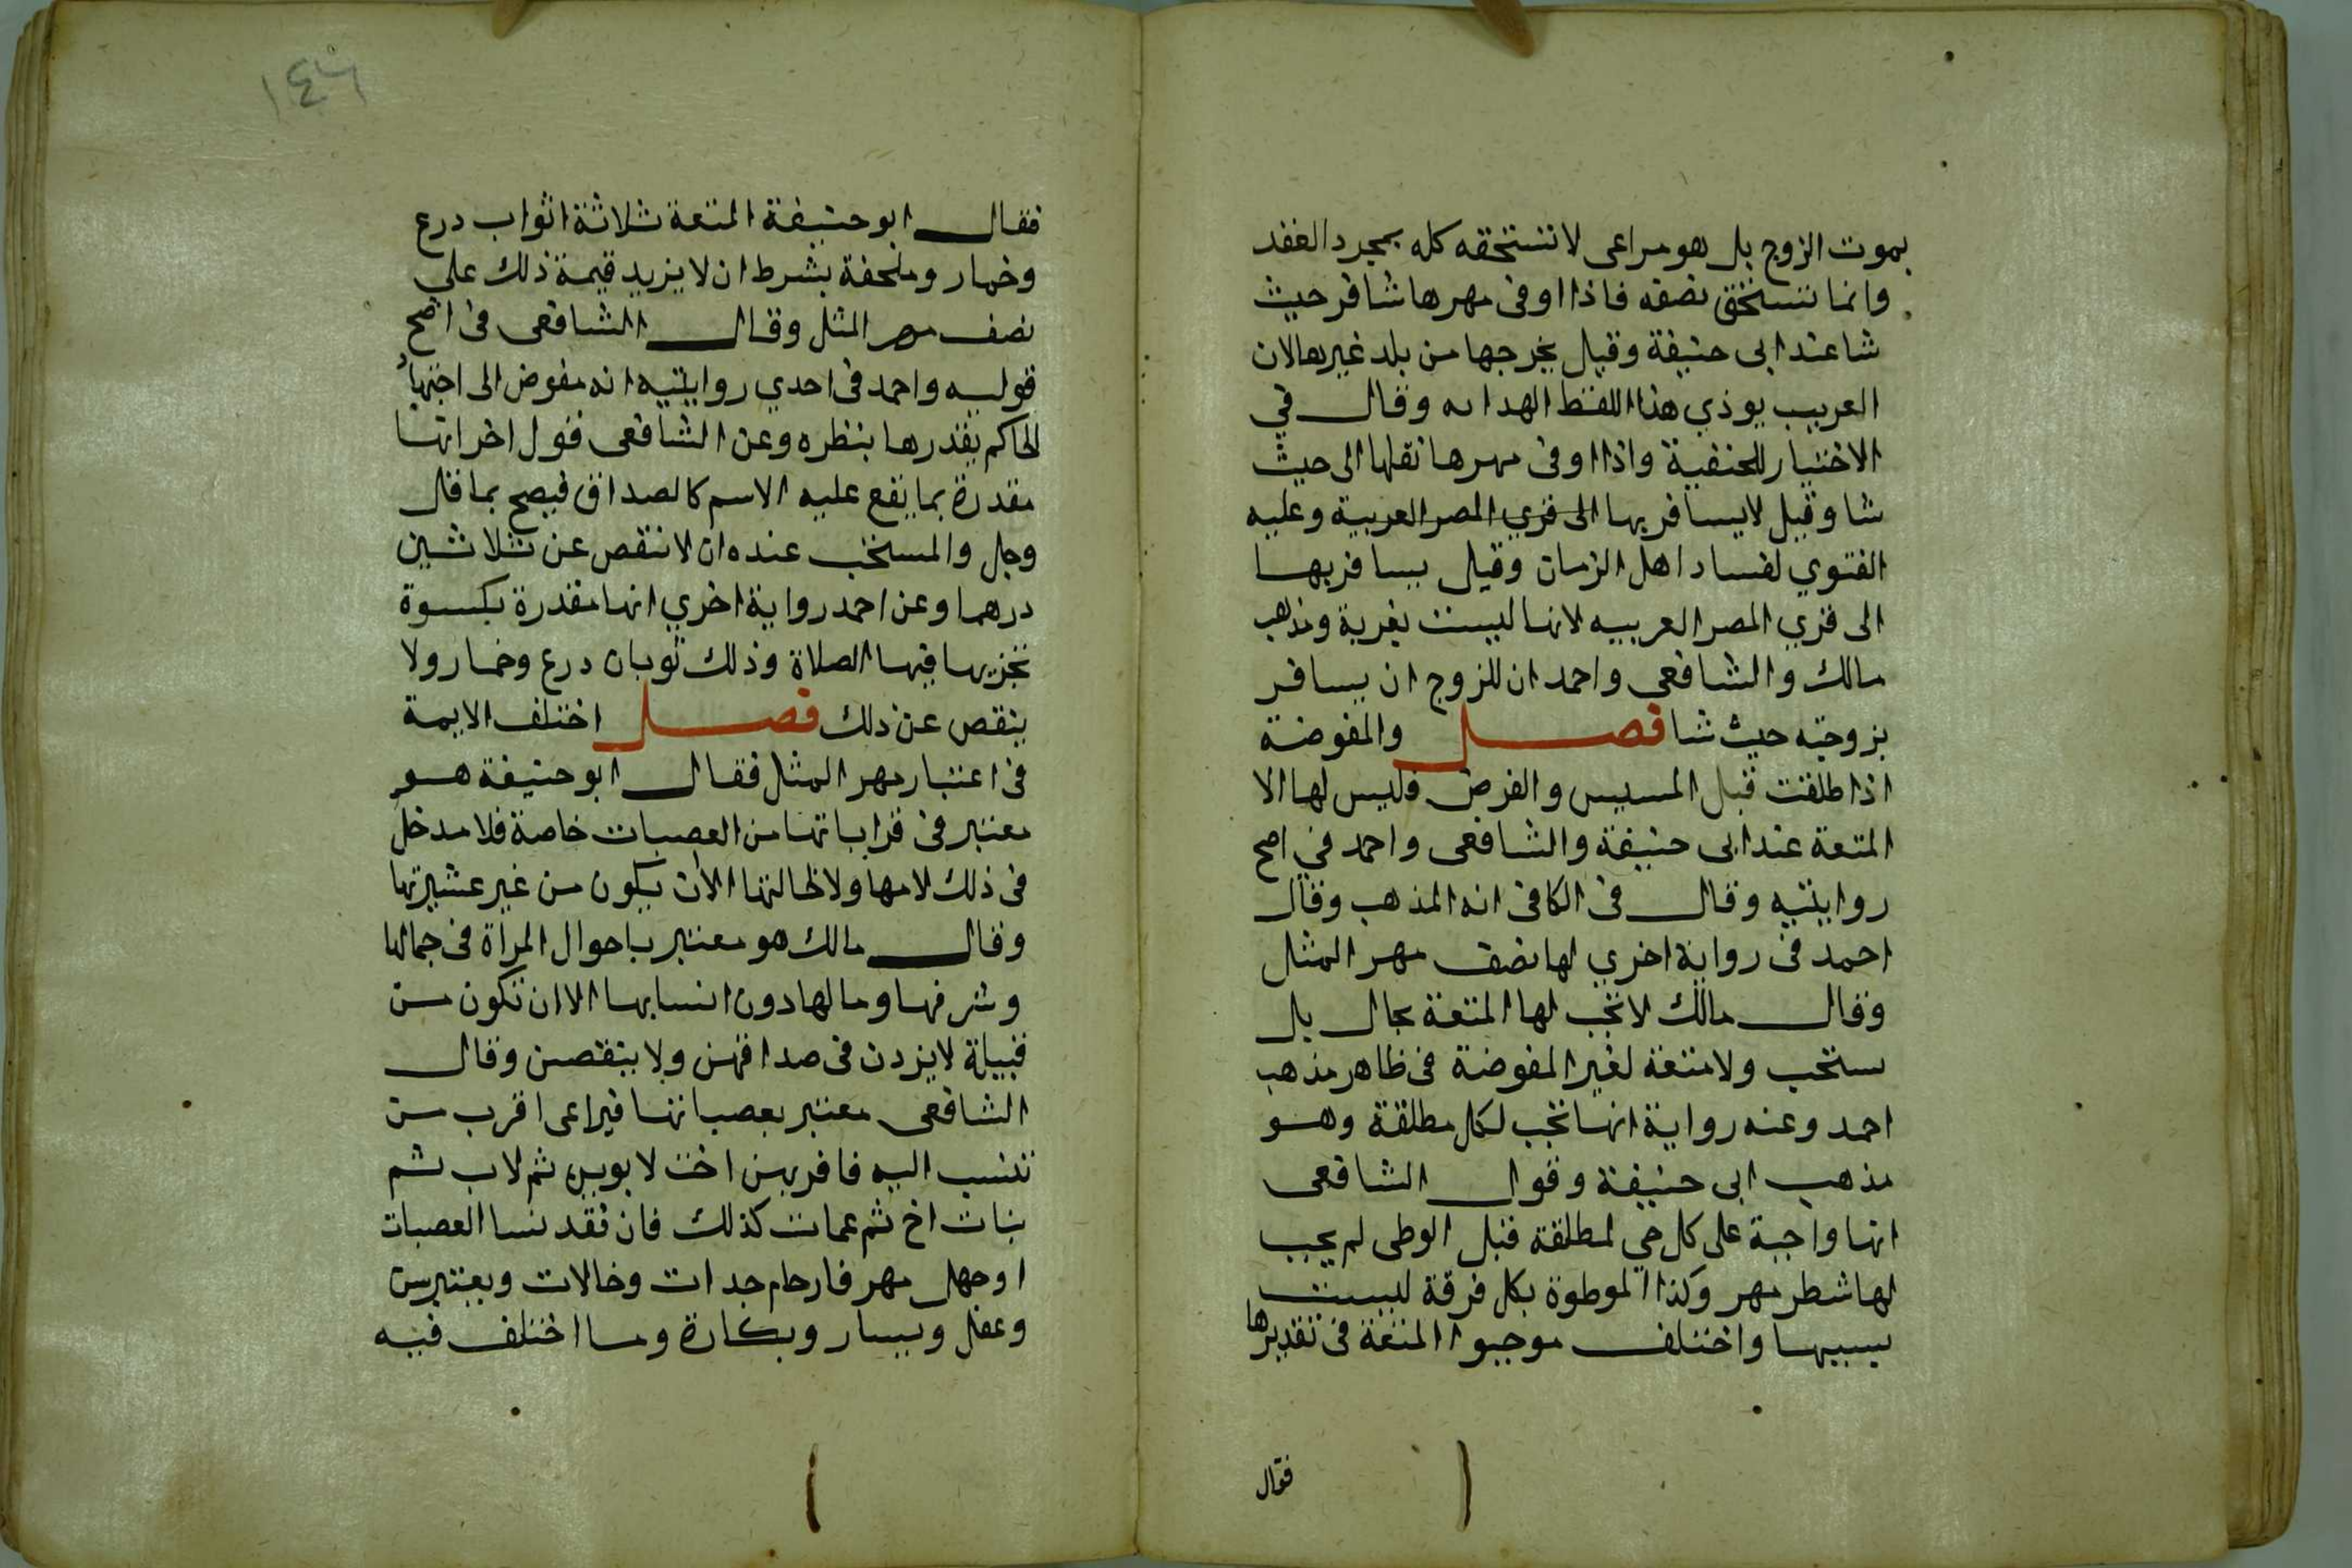 بموت الزوج بل هو مراعى لا تستحقه كله بمجرد العقد
وانما تستحق نصفه فاذا اوفى مهرها شافر حيث
شا عند ابى حنيفة وقيل يخرجها من بلد غير بها لان
الغريب يوذي هذا اللفظ الهدايه وقال في
الاختيار للحنفية واذا اوفى مهرها نقلها الى حيث
شا وقيل لا يسافر بها الى قري المصر العربية وعليه
الفتوي لفساد اهل الزمان وقيل يسافر بها
الى قري المصر العربيه لانها ليست بغربة ومذهب
مالك والشافعى واحمد ان للزوج ان يسافر
بزوجته حيث شا فصل والمفوضة
اذا طلقت قبل المسيس والفرض فليس لها الا
المتعة عند ابى حنيفة والشافعى واحمد في اصح
روايتيه وقال فى الكافى انه المذهب وقال
احمد فى رواية اخري لها نصف مهر المثل
وقال مالك لا تجب لها المتعة بحال بل
ستحب ولا متعة لغير المفوضة فى ظاهر مذهب
احمد وعنه رواية انها تجب لكل مطلقة وهو
مذهب ابى حنيفة وقول الشافعى
انها واجبة على كل حي لمطلقة قبل الوطى لم يجب
لها شطر مهر وكذا الموطوة بكل فرقة ليست
بسببها واختلف موجبوا المتعة فى تقديرها
فقال
١٤٦
فقال ابو حنيفة المتعة ثلاثة اثواب درع
وخمار وملحفة بشرط ان لا يزيد قيمة ذلك على
نصف مهر المثل وقال الشافعى فى اصح
قوليه واحمد فى احدي روايتيه انه مفوض الى اجتهاد
الحاكم يقدرها بنظره وعن الشافعى قول اخر انها
مقدرة بما يقع عليه الاسم كالصداق فيصح بما قل
وجل والمستحب عنده ان لا تنقص عن ثلاثين
درهما وعن احمد رواية اخري انها مقدرة بكسوة
تجزيها فيها الصلاة وذلك ثوبان درع وخمار ولا
ينقص عن ذلك فصل اختلف الايمة
فى اعتبار مهر المثل فقال ابو حنيفة هو
معتبر فى قراباتها من العصبات خاصة فلا مدخل
فى ذلك لامها ولا لخالتها الا ان يكون من غير عشيرتها
وقال مالك هو معتبر باحوال المراة فى جمالها
وشرفها ومالها دون انسابها الا ان تكون من
قبيلة لا يزدن فى صداقهن ولا ينقصن وقال
الشافعى معتبر بعصباتها فيراعى اقرب من
تنسب اليه فاقربهن اخت لابوين ثم لاب ثم
بنات اخ ثم عمات كذلك فان فقد نسا العصبات
او جهل مهر فارحام جدات وخالات ويعتبر سن
وعقل ويسار وبكارة وما اختلف فيه